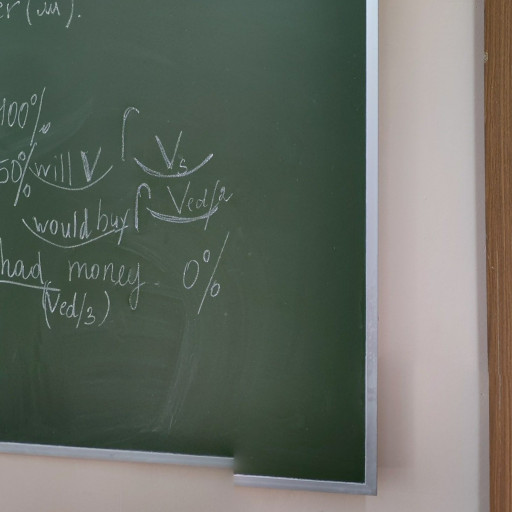 er (ли).
100%
50% will V ∫ Vs
would buy ∫ Ved/2
had money. 0%
(Ved/3)